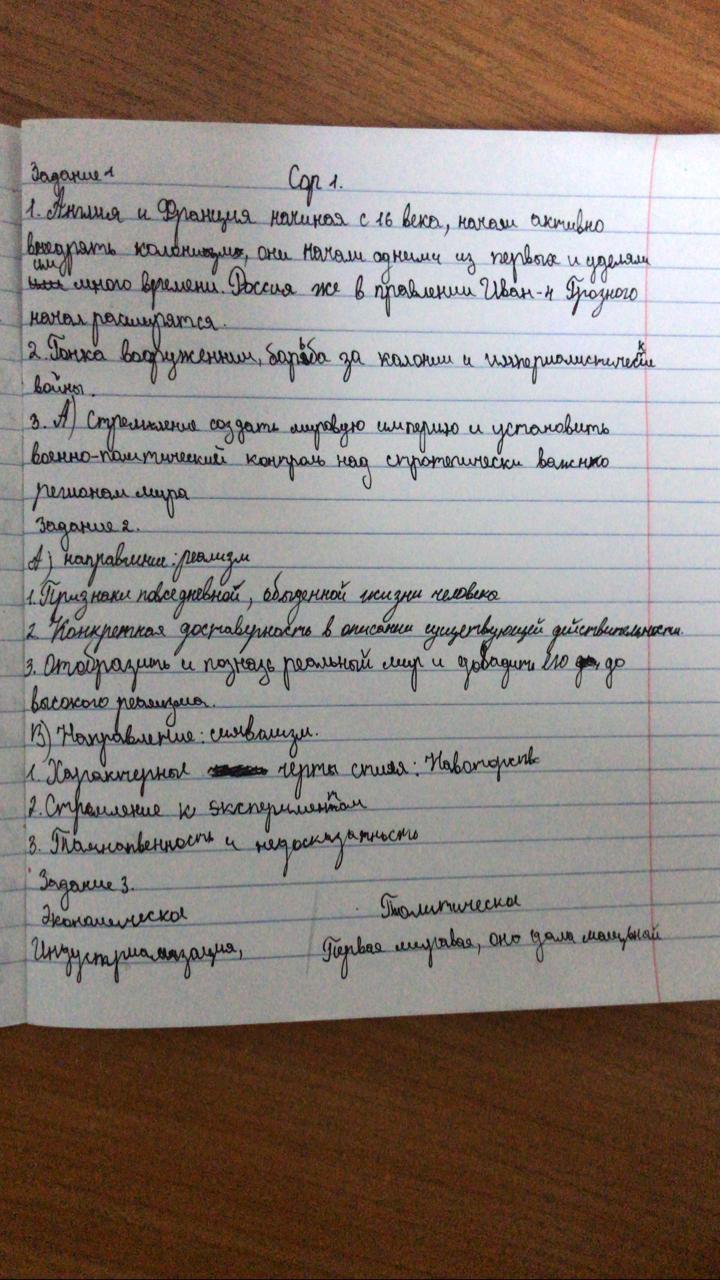 Задание 1 Сор 1.
1. Англия и Франция начиная с 16 века, начали активно
внедрять колонизм, они начали одними из первых и уделяли
ему много времени. Россия же в правлении Иван-4 Грозного
начал расширятся.
2. Гонка вооруженним, барьба за колонии и империалистически
войны.
3. А) Стремление создать мировую империю и установить
военно-политический контроль над стротегически важно
регионам мира
Задание 2.
А) направление: реализм
1. Признаки повседневной, обыденной жизни человека
2. Конкретная доставерность в описании существующей действительности.
3. Отобразить и познать реальный мир и довадить его до
высокого реализма.
В) Направление: символизм.
1. Характерные черты стиля: Новаторств
2. Стремление к экспериментам
3. Таинственность и недосказатность
Задание 3.
Экономическая Политическая
Индустриализация, Первая мировая, оно дала мощьный